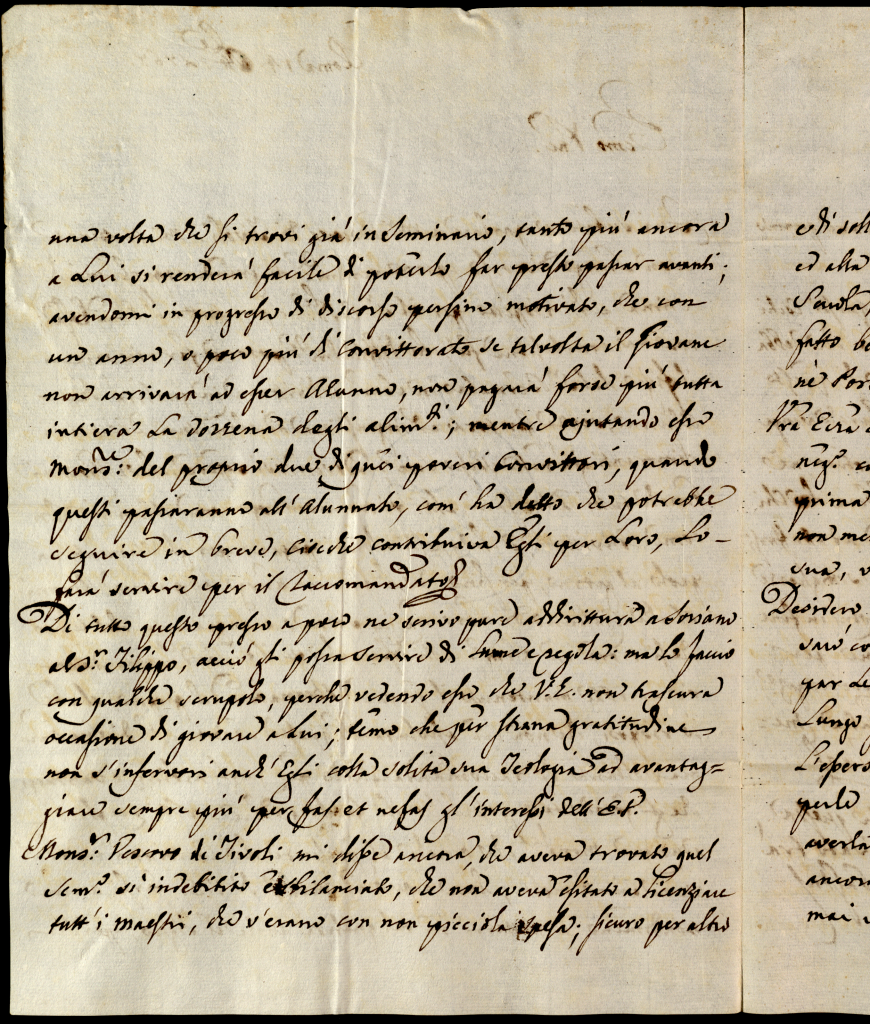 una volta che si trovi già in Seminario, tanto più ancora
a Lui si renderà facile di poterlo far presto passar avanti;
avendomi in progresso di discorso persino motivato, che con
un anno, o poco più di Convittorato se talvolta il Giovane
non arrivarà ad esser Alunno, non pagarà forse più tutta
intiera La dozzena degli alim.ti; mentre ajutando esso
Mons.r: del proprio due di quei poveri Convittori, quando
questi passaranno all'Alunnato, com'ha detto che potrebbe
seguire in breve, ciocche contribuiva Egli per Loro, Lo-
farà servire per il Raccomandato.
Di tutto questo presso a poco ne scrivo pure addirittura a Soriano
al S.r Filippo, acciò gli possa servire di Lume e regola: ma lo faccio
con qualche scrupolo, perche vedendo esso che V.E. non trascura
occasione di giovare a Lui; temo che per strana gratitudine
non s'infervori anch'Egli colla solita sua Teologia ad avantag=
giare sempre più per fas et nefas gl'interessi dell'E.V.
Mons.r: Vescovo di Tivoli mi disse ancora, che aveva trovato quel
Sem.o sì indebitito e sbilanciato, che non aveva esitato a licenziare
tutt'i maestri, che v'erano con non picciola spesa; sicuro per altro
ed alla
Scuola,
fatto
nè
V'ra Ecc'a
prima
non
sua,
Desidero
sarò
par
Lungo
L'
perle
averla
ancor
mai